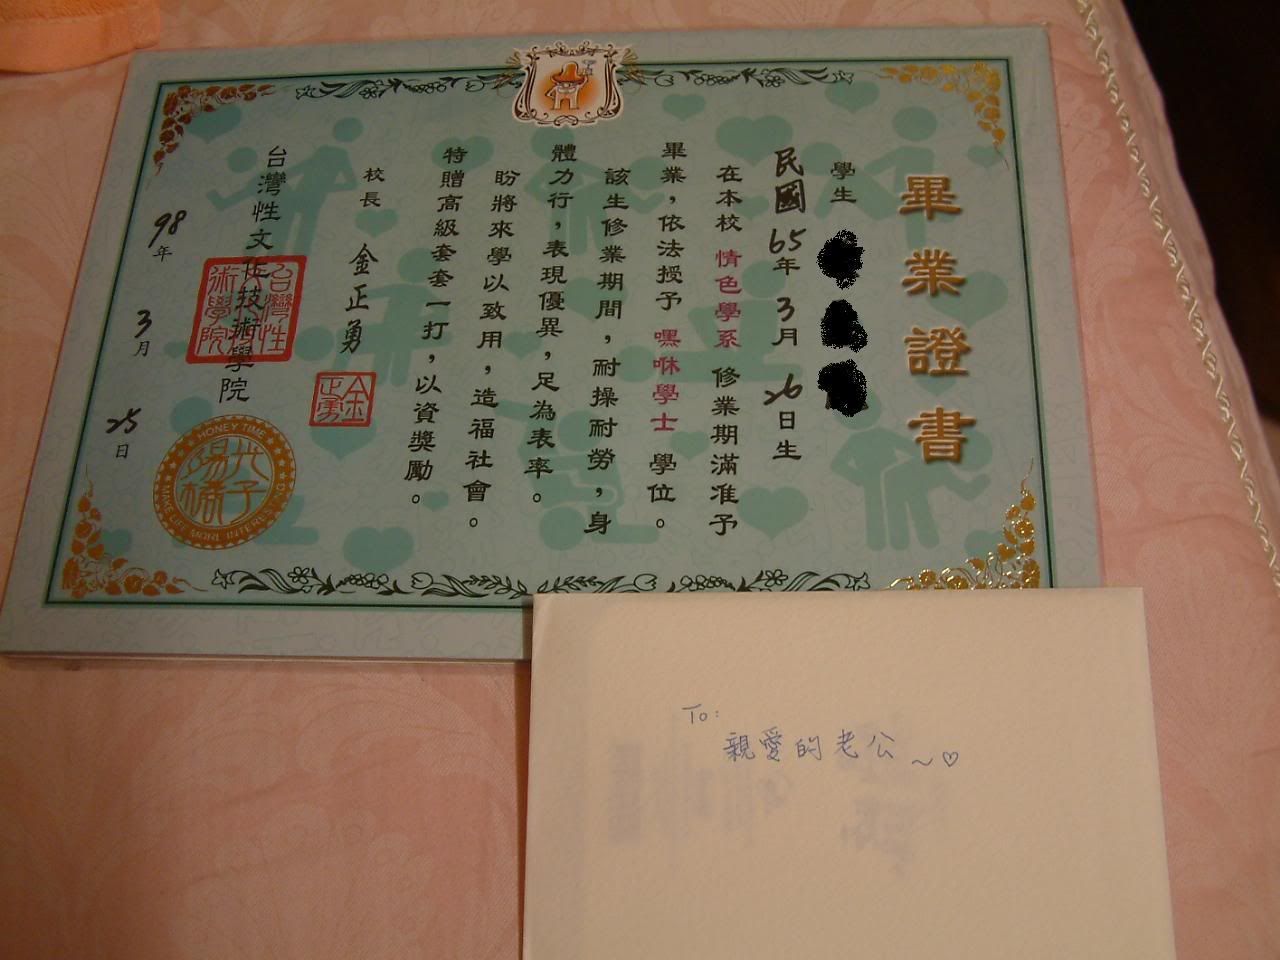 畢業證書
學生
民國65年3月26日生
在本校 情色學系 修業期滿准予
畢業，依法授予 嘿咻學士 學位。
該生修業期間，耐操耐勞，身
體力行，表現優異，足為表率。
盼將來學以致用，造福社會。
特贈高級套套一打，以資獎勵。
校長 金正勇
金正勇
台灣性文化技術學院
台灣性
術學院
98年3月25日
HONEY TIME
MAKE LIFE MORE INTERE
To:
親愛的老公～♡